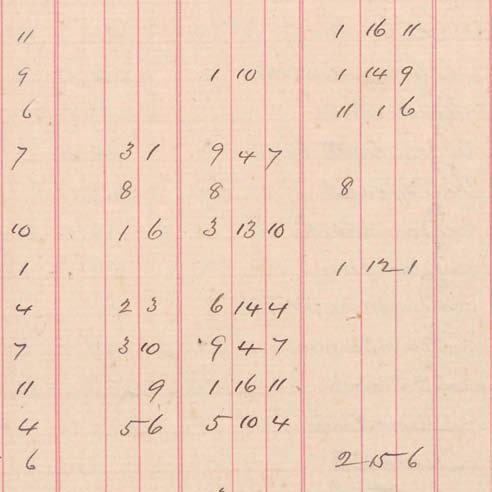 11 1 16 11
9 1 10 1 14 9
6 11 1 6
7 3 1 9 4 7
8 8 8
10 1 6 3 13 10
1 1 12 1
4 2 3 6 14 4
7 3 10 9 4 7
11 9 1 16 11
4 5 6 5 10 4
6 2 15 6